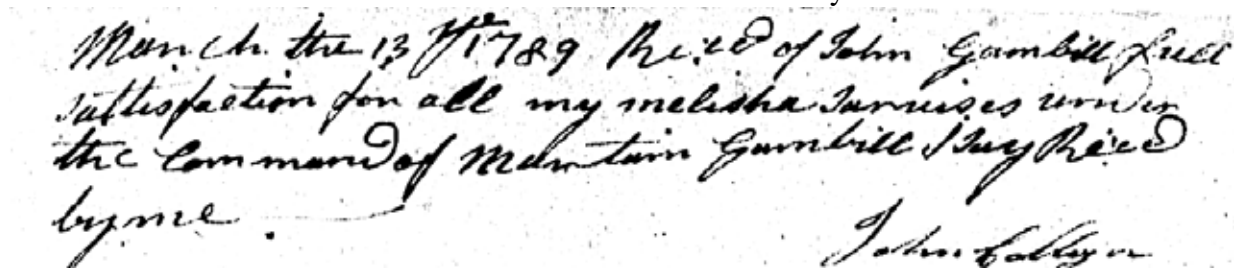 March the 13th 1789 Reced of John Gambill full
sattisfaction for all my melisha Sarvises under
the Command of Martain Gambill I Say Reced
by me
John Collyer